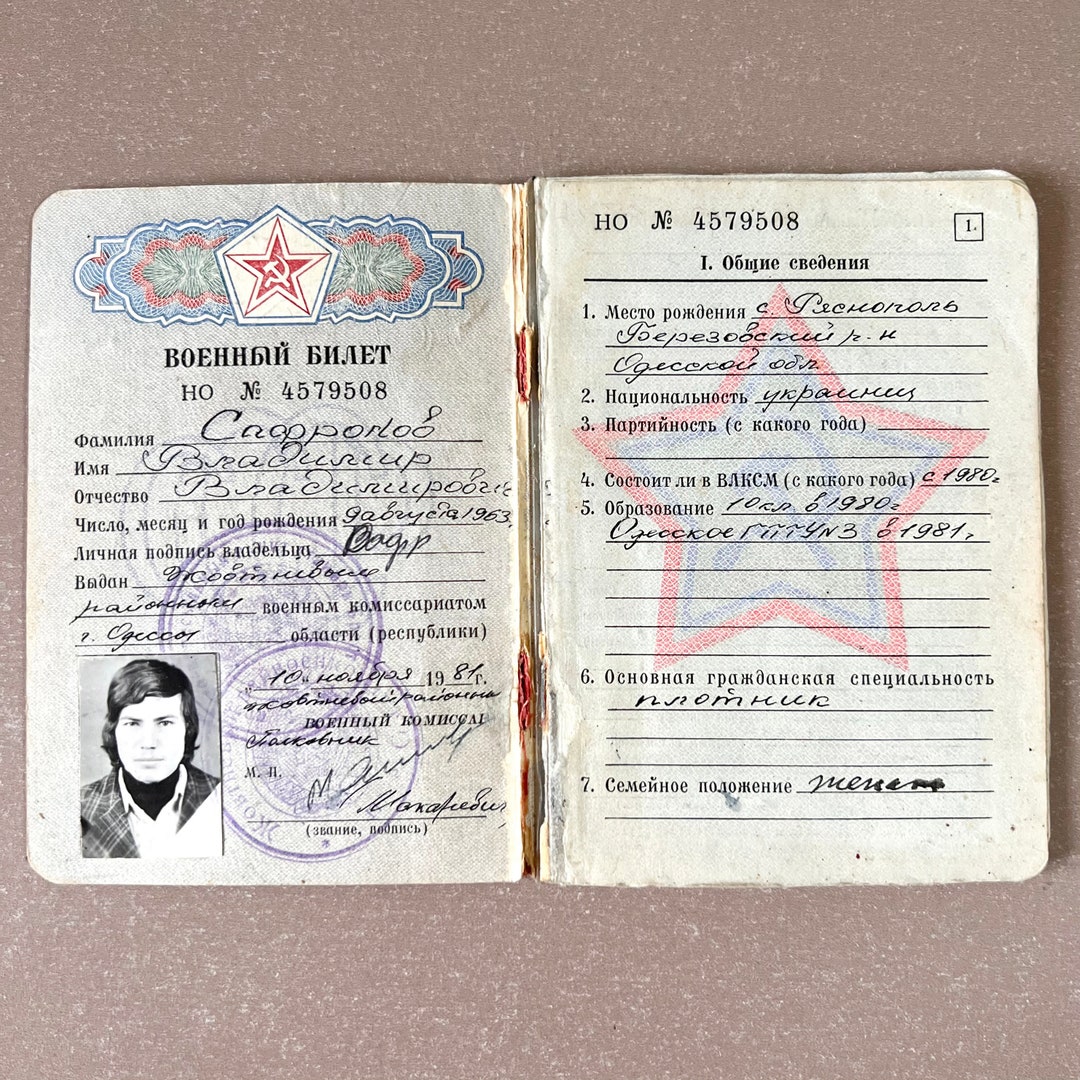 ВОЕННЫЙ БИЛЕТ
НО № 4579508
Фамилия Сафронов
Имя Владимир
Отчество Владимирович
Число, месяц и год рождения 9 августа 1963
Личная подпись владельца Сафр
Выдан Жовтневым
районным военным комиссариатом
г. Одессы области (республики)
„10“ ноября 1981 г.
Жовтневый районный
ВОЕННЫЙ КОМИССАР
Полковник
М. П.
Макаревич
(звание, подпись)
НО № 4579508
1.
I. Общие сведения
1. Место рождения с. Ряснополь
Березовский р-н
Одесской обл.
2. Национальность украинец
3. Партийность (с какого года)
4. Состоит ли в ВЛКСМ (с какого года) с 1980г
5. Образование 10 кл. в 1980г
Одесское ГПТУ №3 в 1981г.
6. Основная гражданская специальность
плотник
7. Семейное положение женат